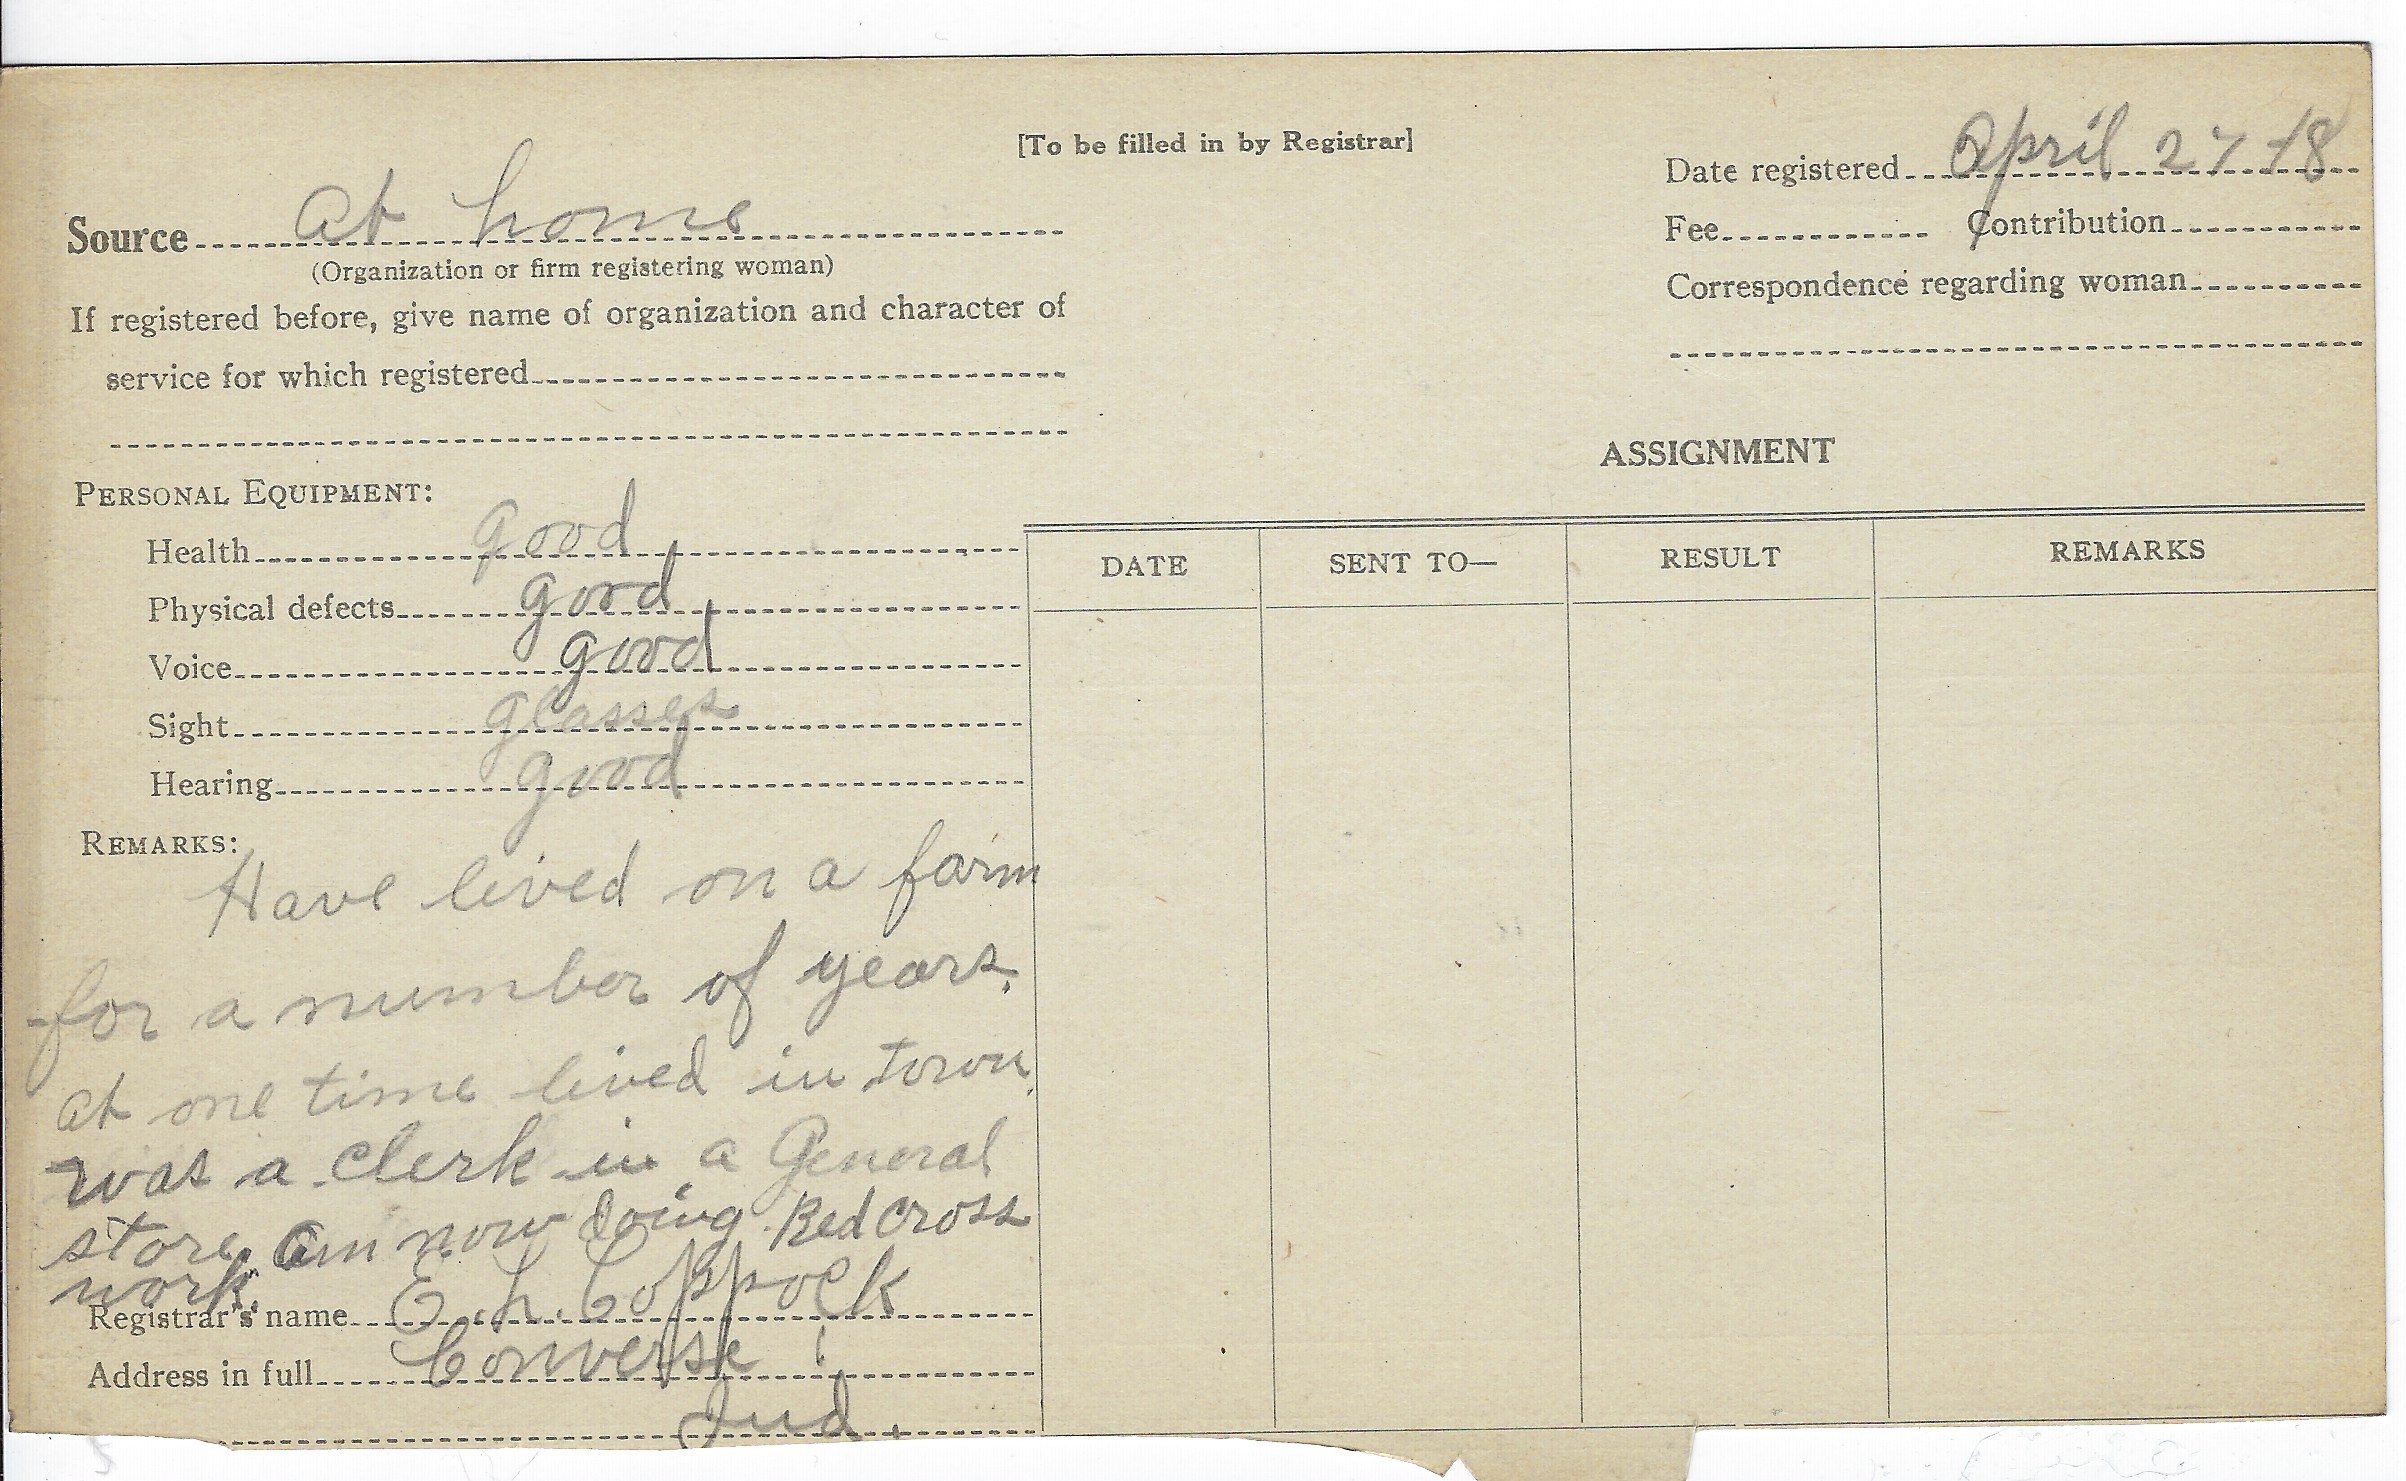 [To be filled in by Registrar]
Date registered April 27 18
Source at home
(Organization or firm registering woman)
Fee Contribution
If registered before, give name of organization and character of
service for which registered
Correspondence regarding woman
PERSONAL EQUIPMENT:
Health good
Physical defects good
Voice good
Sight glasses
Hearing good
REMARKS:
Have lived on a farm
for a number of years.
at one time lived in town.
was a clerk in a General
store. Am now doing Red Cross
work.
Registrar's name E. L. Coppock
Address in full Converse
Ind.
ASSIGNMENT
DATE SENT TO— RESULT REMARKS